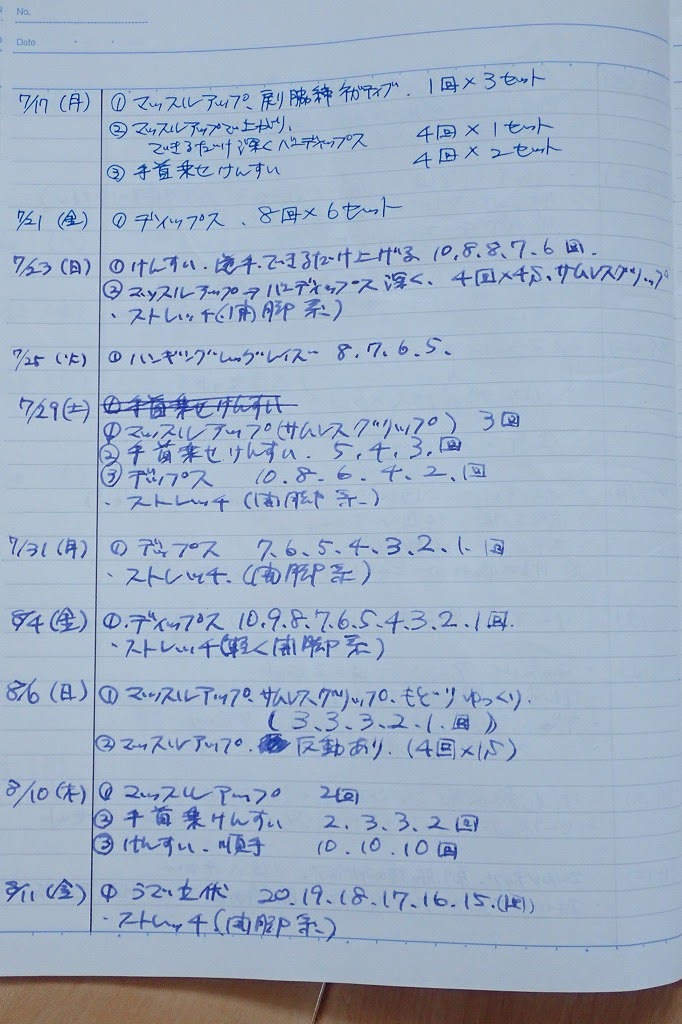 No.
Date
7/17 (月) ① マッスルアップ、肩脇締ネガティブ. 1回×3セット
② マッスルアップで上がり、
できるだけ深くバーディップス 4回×1セット
③ 手首乗せけんすい 4回×2セット
7/21 (金) ① ディップス. 8回×6セット
7/23 (日) ① けんすい.逆手.できるだけ上げる 10.8.8.7.6回.
② マッスルアップ→バーディップス深く、4回×4S、サムレスグリップ
・ストレッチ(開脚系)
7/25 (火) ① ハンギングレッグレイズ 8.7.6.5.
7/29 (土) ① 手首乗せけんすい
① マッスルアップ(サムレスグリップ) 3回
② 手首乗せけんすい. 5.4.3.回
③ ディップス 10.8.6.4.2.回
・ストレッチ (開脚系)
7/31 (月) ① ディップス 7.6.5.4.3.2.1.回
・ストレッチ. (開脚系)
8/4 (金) ①.ディップス 10.9.8.7.6.5.4.3.2.1回.
・ストレッチ(軽く開脚系)
8/6 (日) ① マッスルアップ、サムレスグリップ、もどりゆっくり.
(3.3.3.2.1.回)
② マッスルアップ. 反動あり. (4回×1S)
8/10 (木) ① マッスルアップ 2回
② 手首乗けんすい 2.3.3.2回
③ けんすい.順手 10.10.10回
8/11 (金) ① うで立伏 20.19.18.17.16.15.(回)
・ストレッチ(開脚系)